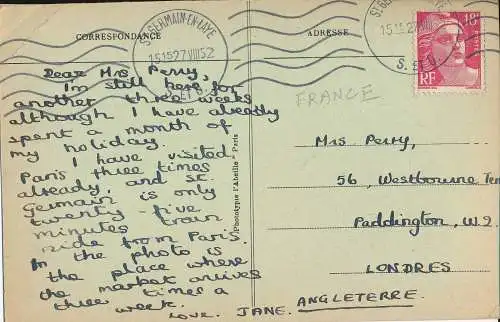 CORRESPONDANCE
ADRESSE
ST GERMAIN-EN-LAYE
15 15 27 VIII 52
S. ET O.
15 15 27 VIII
S. ET O
18F
RF
FRANCE
Dear Mrs Perry,
Im still here for
another three weeks
although I have already
spent a month of
my holiday.
I have visited
Paris three times
already, and St.
Germain is only
twenty-five
minutes train
ride from Paris.
In the photo is
the place where
the market arrives
three times a
week.
Love. JANE.
Phototypie l'Abeille - Paris
Mrs Perry,
56, Westbourne Ter
Paddington, W.2.
LONDRES
ANGLETERRE.